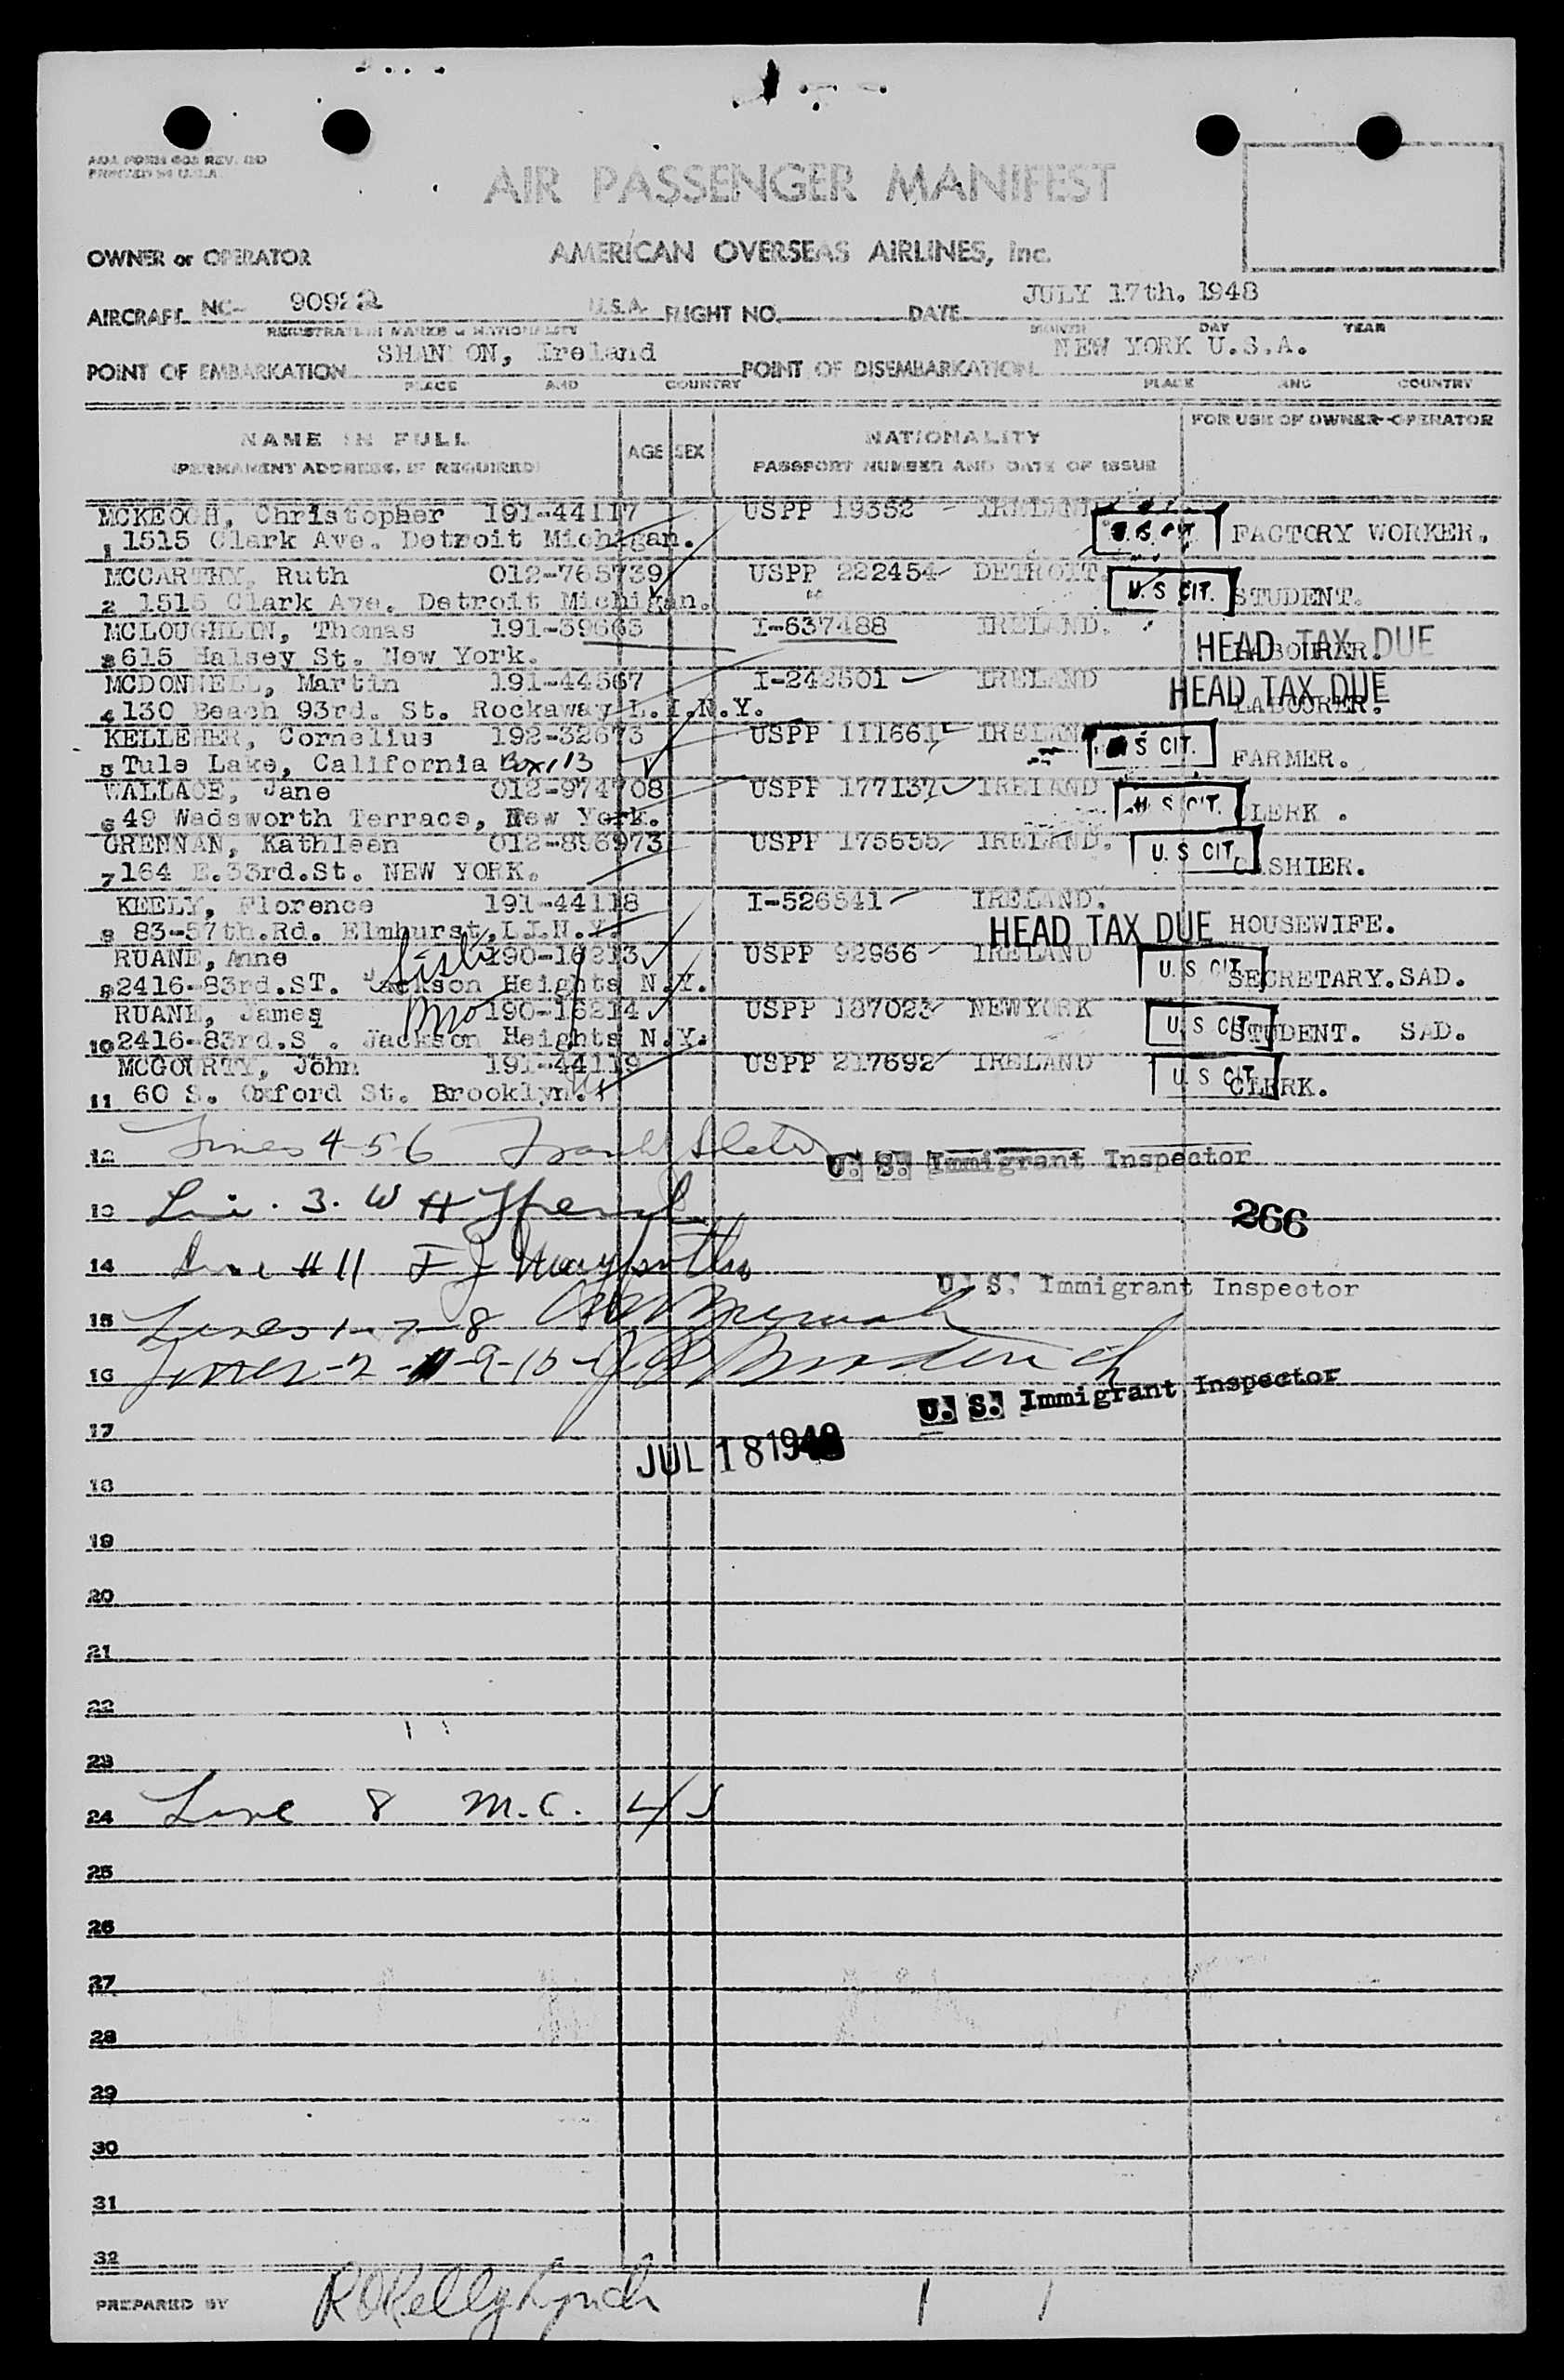 AOA FORM 603 REV.
PRINTED IN U.S.A.
AIR PASSENGER MANIFEST
OWNER or OPERATOR AMERICAN OVERSEAS AIRLINES, Inc.
AIRCRAFT NC- 90922 U.S.A. FLIGHT NO. DATE JULY 17th. 1948
REGISTRATION MARKS & NATIONALITY MONTH DAY YEAR
POINT OF EMBARKATION SHAN ON, Ireland POINT OF DISEMBARKATION NEW YORK U.S.A.
PLACE AND COUNTRY PLACE AND COUNTRY
NAME IN FULL AGE SEX NATIONALITY FOR USE OF OWNER-OPERATOR
(PERMANENT ADDRESS, IF REQUIRED) PASSPORT NUMBER AND DATE OF ISSUE
MCKEOGH, Christopher 191-44117 USPP 19352 IRELAND
1 1515 Clark Ave. Detroit Michigan. U.S. CIT. FACTORY WORKER.
MCCARTHY, Ruth 012-765739 USPP 222454 DETROIT.
2 1515 Clark Ave. Detroit Michigan. U.S CIT. STUDENT.
MCLOUGHLIN, Thomas 191-39663 I-637488 IRELAND.
3 615 Halsey St. New York. HEAD TAX DUE LABOURER.
MCDONNELL, Martin 191-44567 I-242501 IRELAND
4 130 Beach 93rd. St. Rockaway L.I.N.Y. HEAD TAX DUE LABOURER.
KELLEHER, Cornelius 192-32673 USPP 111661 IRELAND
5 Tule Lake, California Box 113 U S CIT. FARMER.
WALLACE, Jane 012-974708 USPP 177137 IRELAND
6 49 Wadsworth Terrace, New York. U S CIT. CLERK .
GRENNAN, Kathleen 012-896973 USPP 175555 IRELAND.
7 164 E.33rd.St. NEW YORK. U. S CIT. CASHIER.
KEELY, Florence 191-44118 I-526541 IRELAND.
8 83-57th.Rd. Elmhurst,L.I.N.Y. HEAD TAX DUE HOUSEWIFE.
RUANE, Anne 190-16213 USPP 92966 IRELAND
9 2416-83rd.ST. Jackson Heights N.Y. U. S CIT. SECRETARY.SAD.
RUANE, James 190-16214 USPP 187023 NEWYORK
10 2416-83rd.S . Jackson Heights N.Y. U S CIT. STUDENT. SAD.
MCGOURTY, John 191-44119 USPP 217692 IRELAND
11 60 S. Oxford St. Brooklyn. U S CIT. CLERK.
12 Lines 4-5-6 Frank U. S. Immigrant Inspector
13 Line. 3. W H 266
14 Line # 11 F J
U. S. Immigrant Inspector
15 Lines 1-7-8
16 Lines-2-9-10-
U. S. Immigrant Inspector
17
JUL 18 1948
18
19
20
21
22
23
24 Line 8 M.C.
25
26
27
28
29
30
31
32
PREPARED BY R O'Kelly Lynch